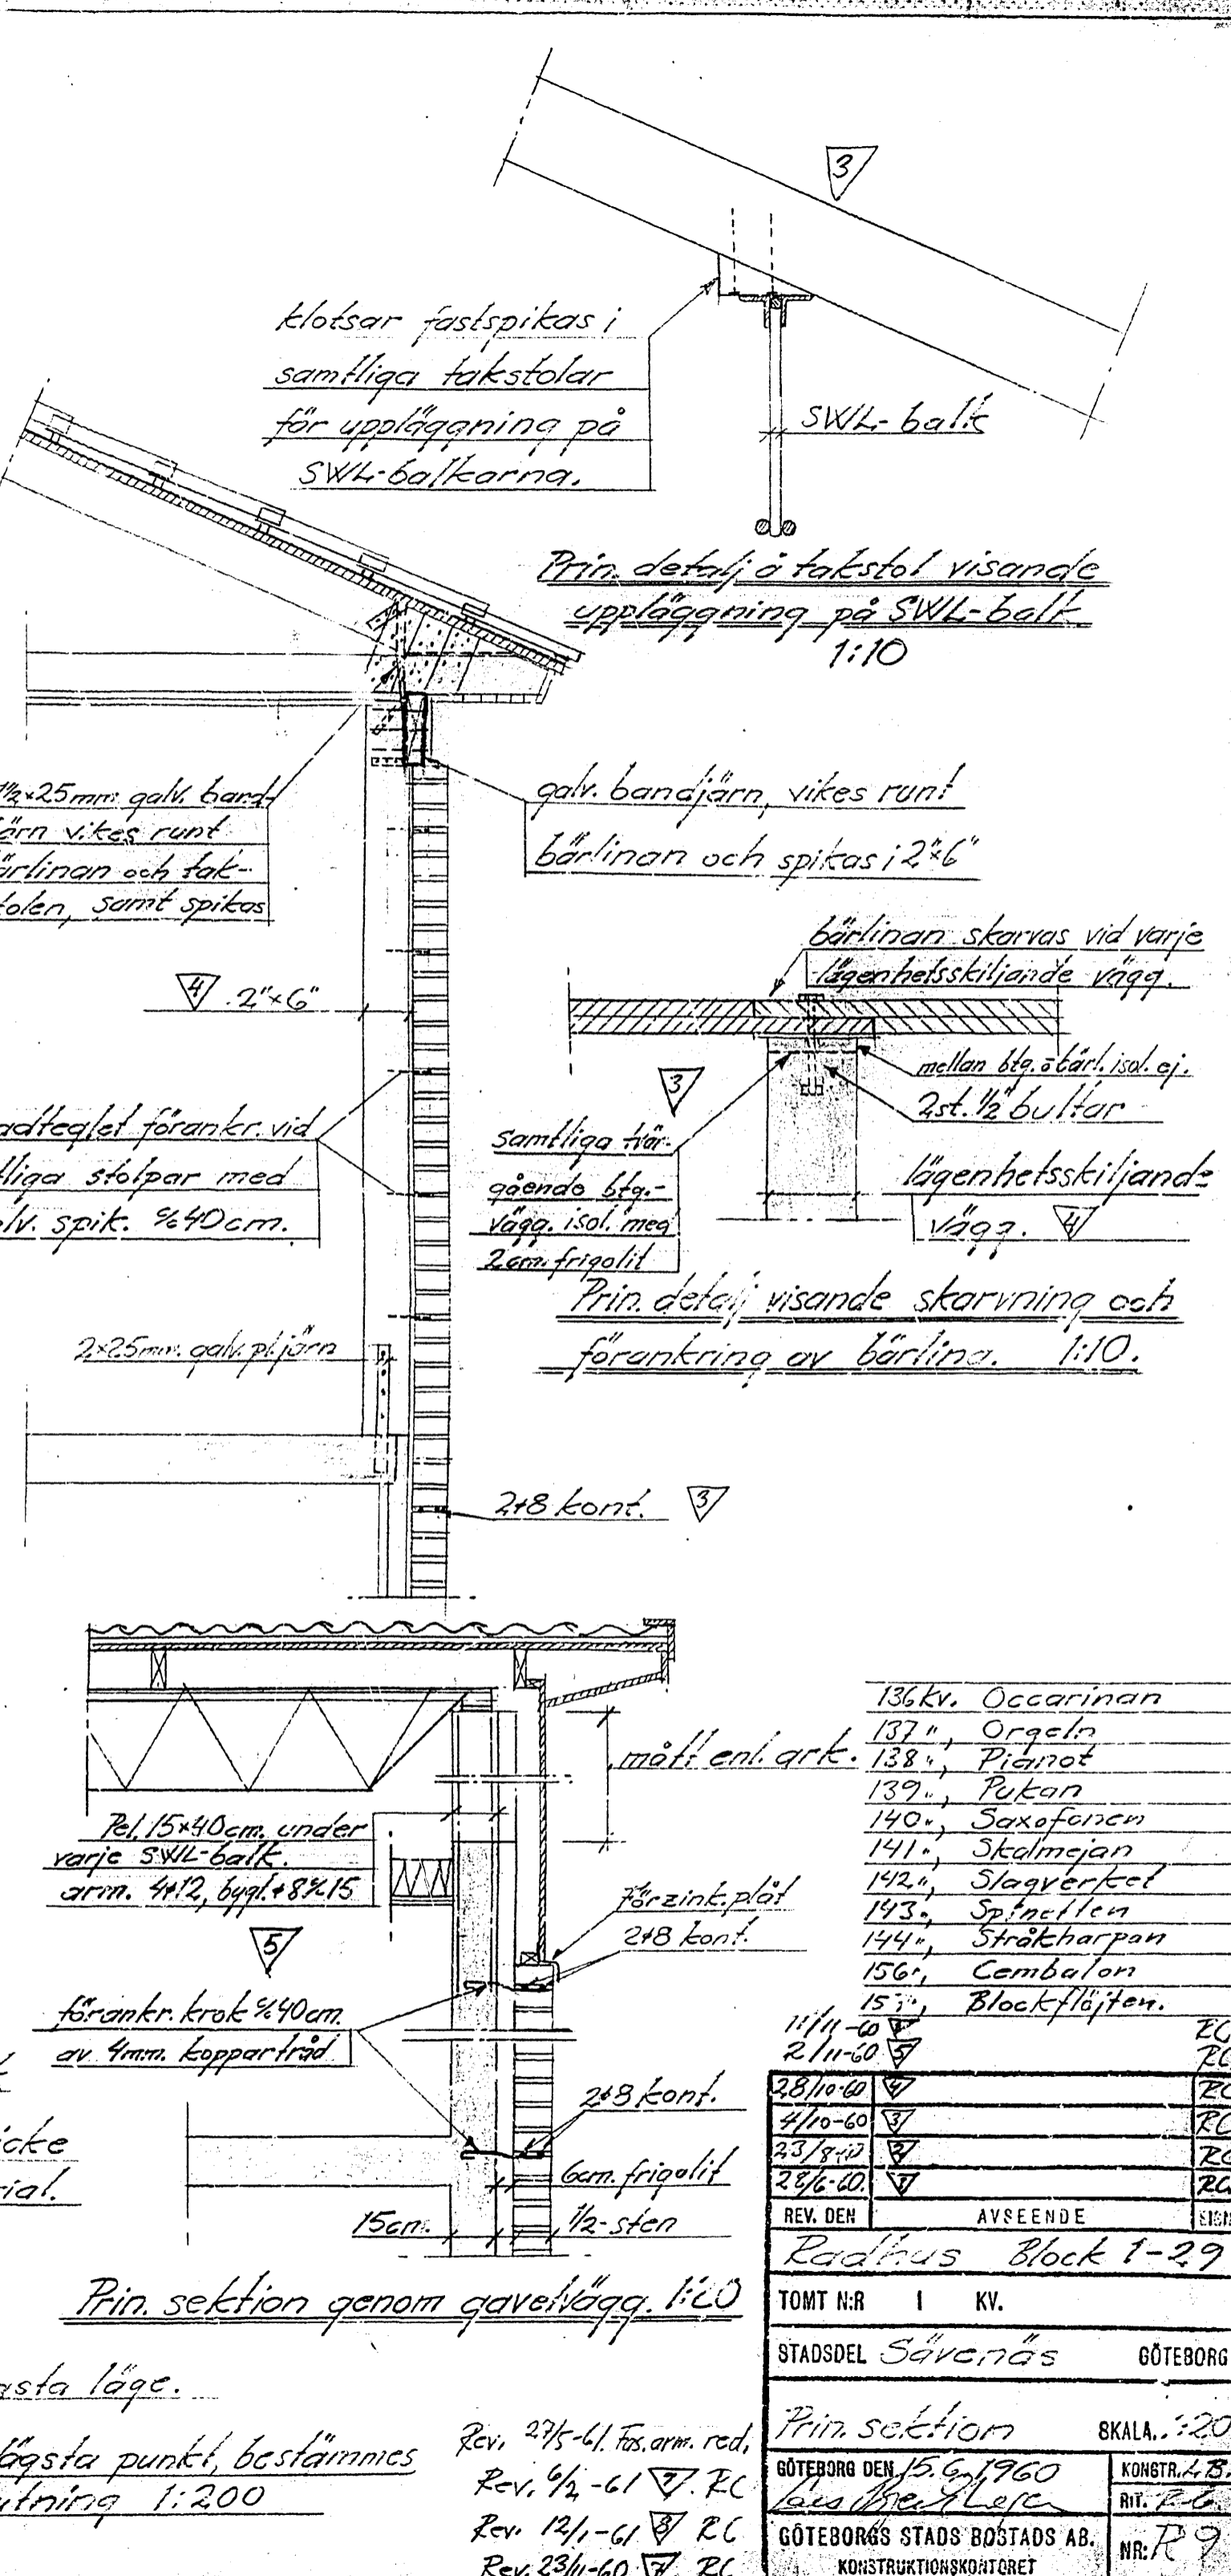 3
klotsar fastspikas i
samtliga takstolar
för uppläggning på
SWL-balkarna.
SWL-balk
Prin. detalj å takstol visande
uppläggning på SWL-balk
1:10
1/2×25mm galv. band-
järn vikes runt
bärlinan och tak-
tolen, samt spikas
galv. bandjärn, vikes runt
bärlinan och spikas i 2"×6"
4 2"×6"
bärlinan skarvas vid varje
lägenhetsskiljande vägg.
mellan btg. o bärl. isol. ej.
2st. 1/2" bultar
3
samtliga tvär-
gående btg.-
vägg. isol. med
2cm. frigolit
lägenhetsskiljande
vägg. 4
adteglet förankr. vid
tliga stolpar med
lv. spik. % 40cm.
Prin. detalj visande skarvning och
förankring av bärlina. 1:10.
2×25mm. galv. pl. järn
2ϕ8 kont. 3
mått enl. ark.
Pel. 15×40cm. under
varje SWL-balk.
arm. 4ϕ12, bygl. ϕ8 % 15
5
Förzink. plåt
2ϕ8 kont.
förankr. krok % 40cm.
av 4mm. koppartråd
2ϕ8 kont.
6cm. frigolit
15cm.
1/2-sten
Prin. sektion genom gavelvägg. 1:20
icke
rial.
sta läge.
ägsta punkt, bestämmes
tning 1:200
136 kv. Occarinan
137 ", Orgeln
138 ", Pianot
139 ", Pukan
140 ", Saxofonen
141 ", Skalmejan
142 ", Slagverket
143 ", Spinetten
144 ", Stråkharpan
156 ", Cembalon
15 ", Blockflöjten.
11/11-60 RC
2/11-60 5 RC
28/10-60 4 RC
4/10-60 3 RC
23/8-60 2 RC
28/6-60. 1 RC
REV. DEN AVSEENDE SIGN
Radhus Block 1-29
TOMT N:R 1 KV.
STADSDEL Sävenäs GÖTEBORG
Prin. sektion SKALA. 1:20
GÖTEBORG DEN 15.6.1960 KONSTR. L.B.
RIT. R.C.
GÖTEBORGS STADS BOSTADS AB. NR: R 9
KONSTRUKTIONSKONTORET
Rev. 27/5-61. Fas. arm. red.
Rev. 6/2-61 RC
Rev. 12/1-61 8 RC
Rev. 23/11-60 7 RC